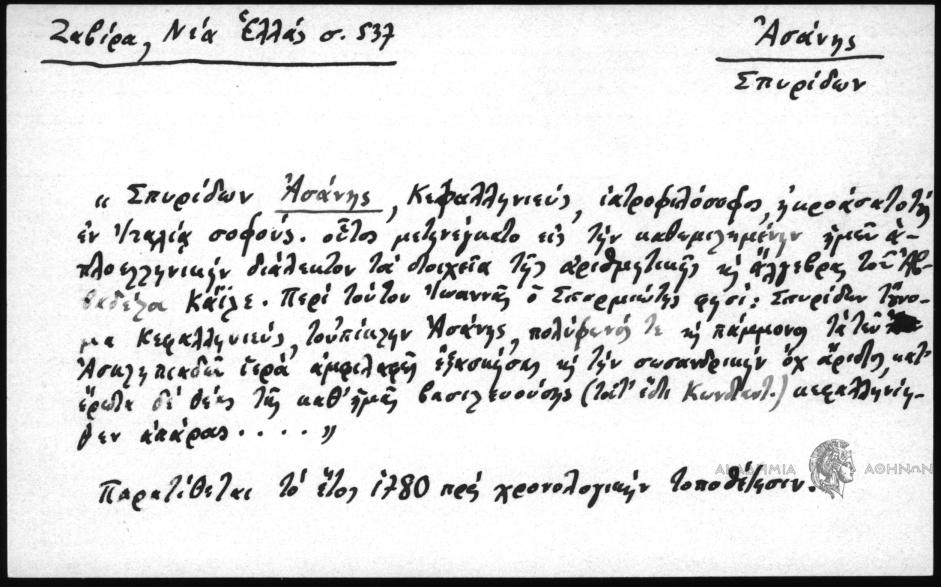 Ζαβίρα, Νέα Ἑλλάς σ. 537
Ἀσάνης
Σπυρίδων
“ Σπυρίδων Ἀσάνης, Κεφαλληνιεύς, ἰατροφιλόσοφος, ἠκροάσατο τούς
ἐν Ἰταλίᾳ σοφούς. οὗτος μετηνέγκατο εἰς τήν καθωμιλημένην ἡμῶν ἁ-
πλοελληνικήν διάλεκτον τά στοιχεῖα τῆς ἀριθμητικῆς κ̣ ἄλγεβρας τοῦ Ἀβ-
Καΐλε. Περί τούτου Ἰωάννης ὁ φησί: Σπυρίδων τοὔνο-
μα Κεφαλληνιεύς, τοὐπίκλην Ἀσάνης, πολύφωνός τε κ̣ πάμμουσος τά τῶν
Ἀσκληπιαδῶν ἱερά ἐξασκήσας κ̣ τήν σωσανδρικήν ὄχ’ ἄριστος, κατ’
ἔρωτα δέ θέας τῆς καθ’ ἡμᾶς βασιλευούσης (τοῦτ’ ἔστι Κωνσταντ.) κεφαλληνίη-
θεν ἀπάρας . . . . ”
Παρατίθεται τό ἔτος 1780 πρός χρονολογικήν τοποθέτησιν.
ΑΚΑΔΗΜΙΑ ΑΘΗΝΩΝ